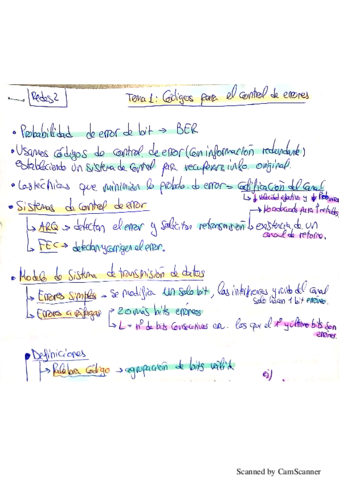 Redes 2
Tema 1: Códigos para el control de errores
• Probabilidad de error de bit → BER
• Usamos códigos de control de error (con información redundante)
estableciendo un sistema de control para recuperar info original.
• Las técnicas que minimizan la probab. de error → codificación del canal
↳ velocidad efectiva y
↳ No adecuado para
• Sistemas de control de error
↳ ARQ → detectan el error y solicitan retransmisión → existencia de un
canal de retorno.
↳ FEC → detectan y corrigen el error.
• Modelo de sistema de transmisión de datos
↳ Errores simples → se modifica un solo bit, las interferencias y ruido del canal
solo 1 bit erróneo.
↳ Errores a ráfagas 2 o más bits erróneos
↳ L = nº de bits consecutivos en los que el 1º y último bits son
erróneos.
• Definiciones
↳ Palabra código → agrupación de bits
ej)
Scanned by CamScanner